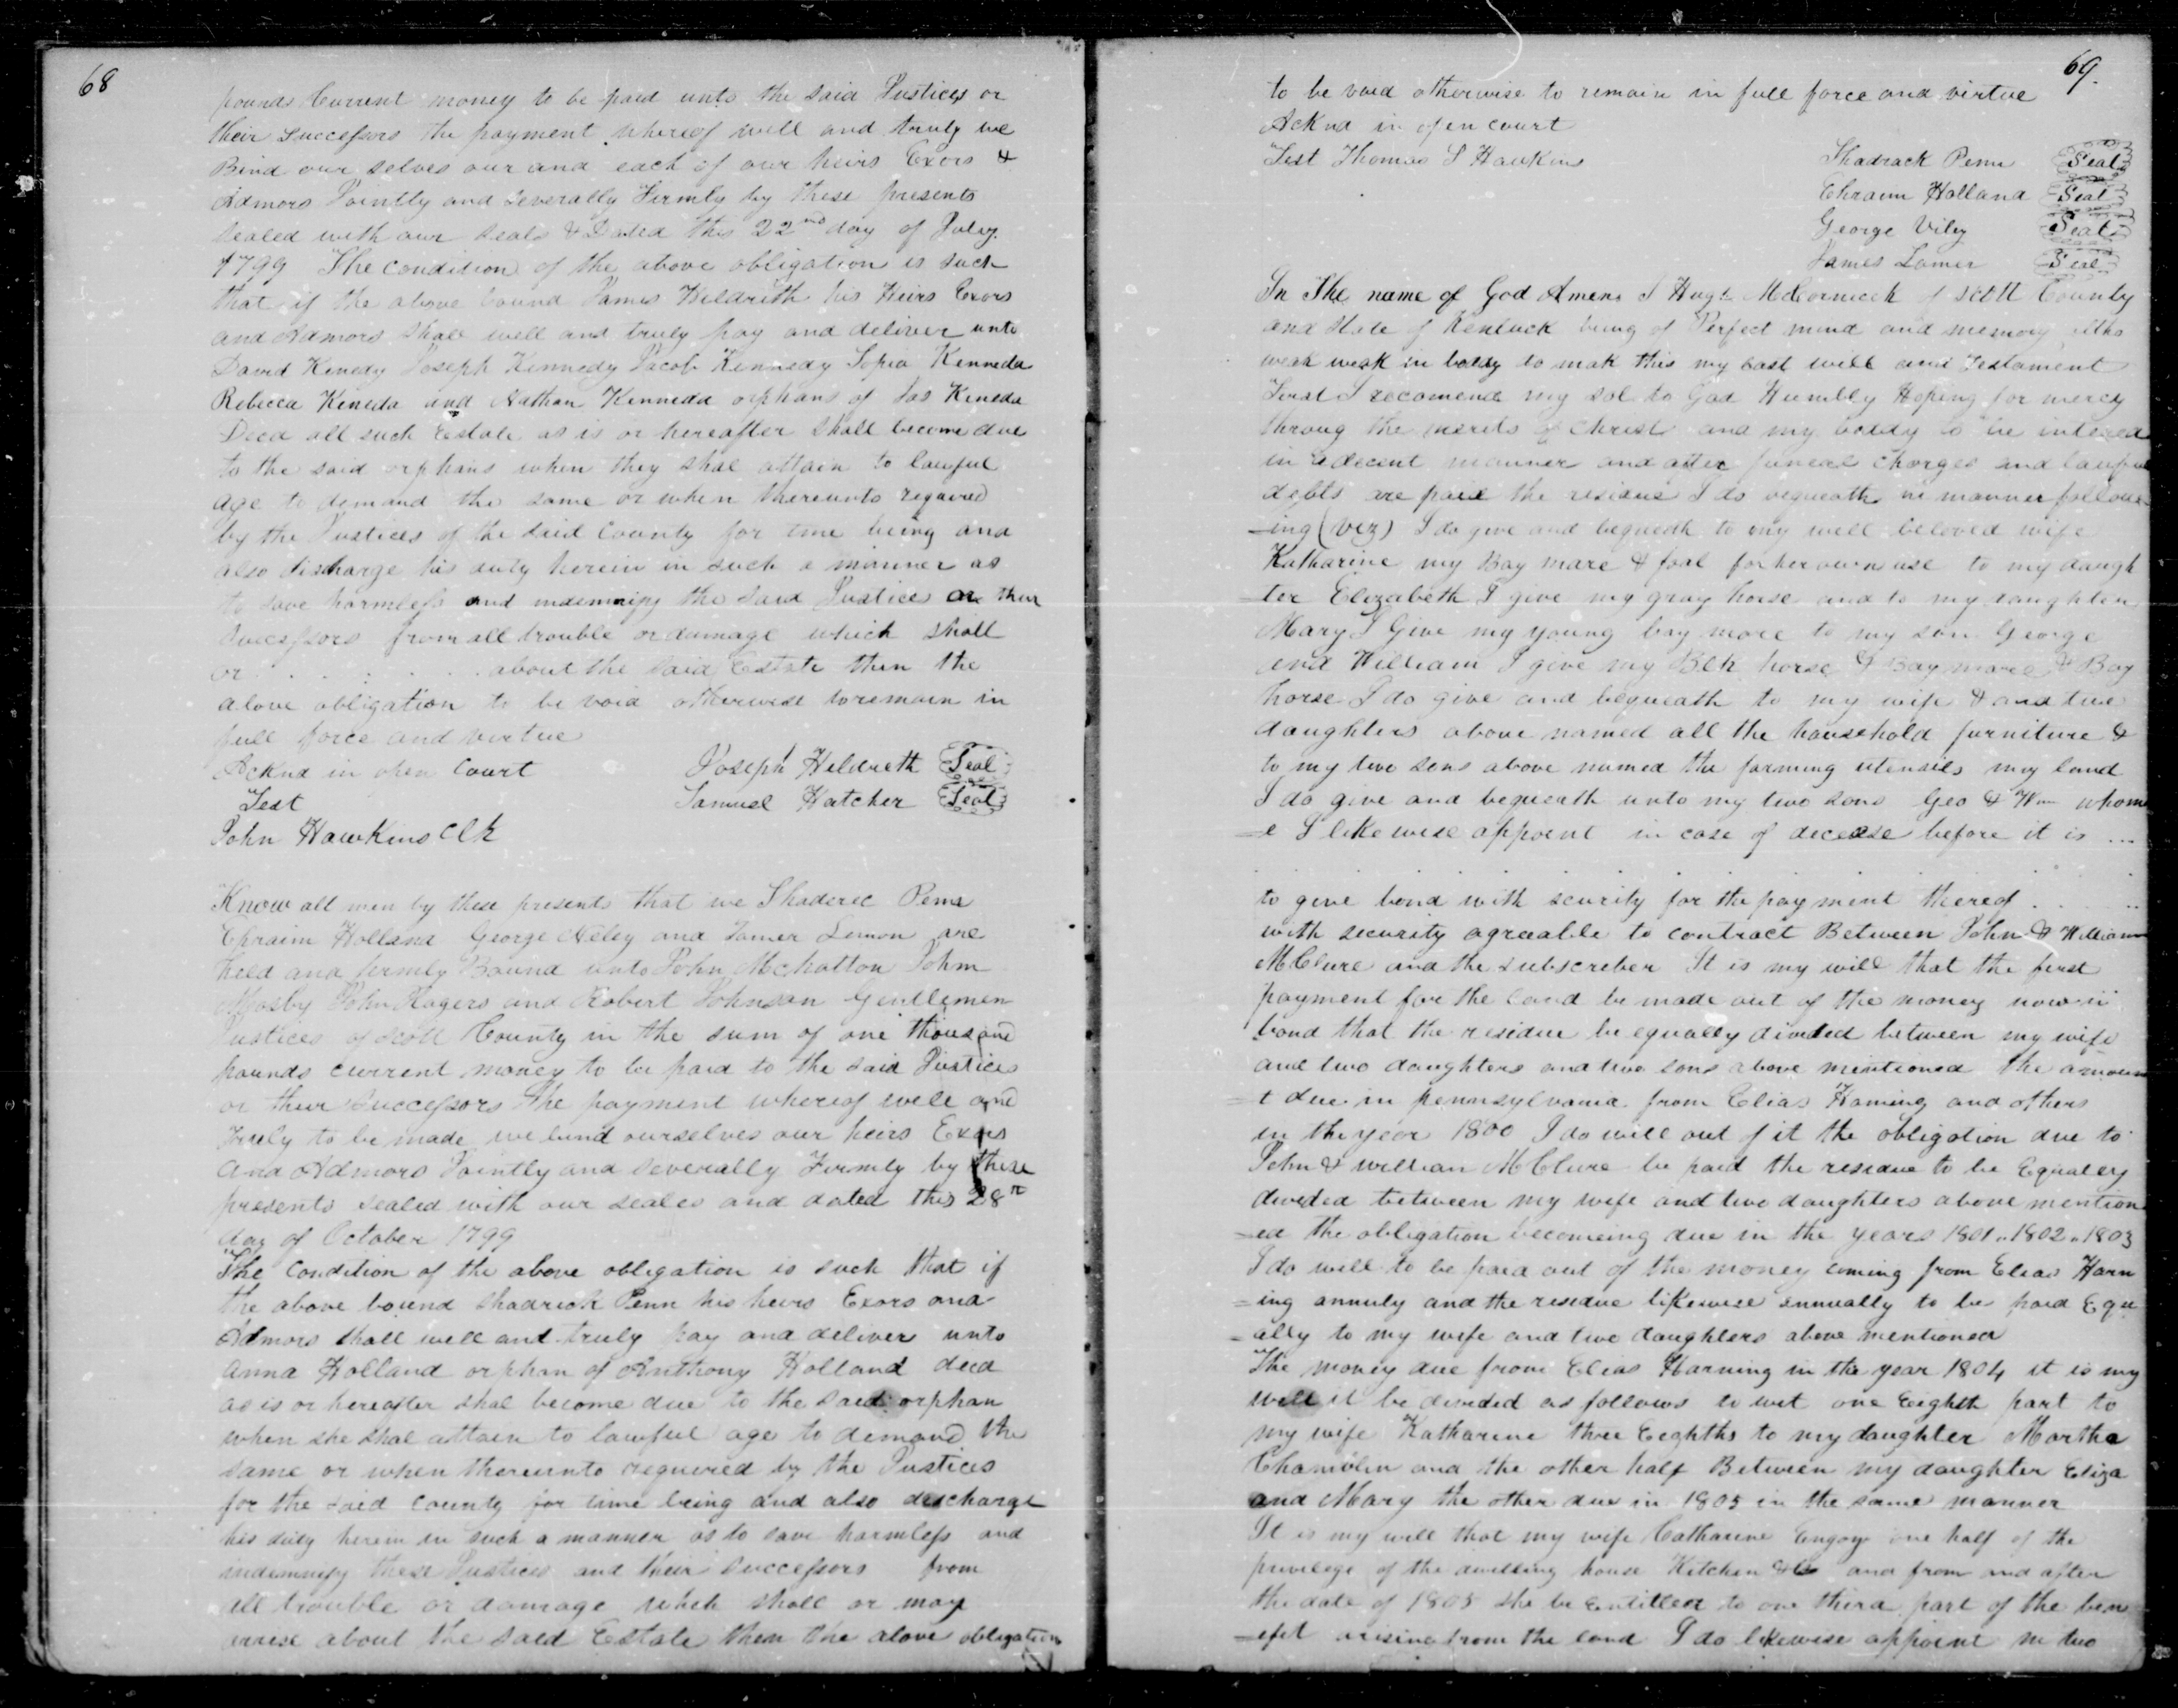 68
pounds Current money to be paid unto the said Justices or
their successors the payment whereof well and truly we
Bind our selves our and each of our heirs Exors &
Admors Jointly and severally Firmly by these presents
sealed with our seals & Dated this 22nd day of July
1799 The condition of the above obligation is such
that if the above bound James Hildreth his Heirs Exors
and Admors shall well and truly pay and deliver unto
David Kenedy Joseph Kennedy Jacob Kennedy Sopia Kenneda
Rebecca Keneda and Nathan Kenneda orphans of Jas Keneda
Decd all such Estate as is or hereafter shall become due
to the said orphans when they shal attain to lawful
age to demand the same or when thereunto required
by the Justices of the said County for time being and
also discharge his duty herein in such a manner as
to save harmless and indemnify the said Justice or their
successors from all trouble or damage which shall
or . . . . . . about the said Estate then the
above obligation to be void otherwise to remain in
full force and virtue
Acknd in open Court Joseph Heldreth Seal
Test Samuel Hatcher Seal
John Hawkins Clk
Know all men by these presents that we Shaderec Penn
Ephraim Holland George Veley and James Lemon are
held and firmly Bound unto John McHatton John
Mosby John Rogers and Robert Johnson Gentlemen
Justices of Scott County in the sum of one thousand
pounds current money to be paid to the said Justices
or their successors The payment whereof well and
Truly to be made we bind ourselves our heirs Exors
and Admors Jointly and severally Firmly by these
presents sealed with our seales and dated this 28th
day of October 1799
The Condition of the above obligation is such that if
the above bound Shadrick Penn his heirs Exors and
Admors shall well and truly pay and deliver unto
Anna Holland orphan of Anthony Holland decd
as is or hereafter shal become due to the said orphan
when she shal attain to lawful age to demand the
same or when thereunto required by the Justices
for the said County for time being and also discharge
his duty herein in such a manner as to save harmless and
indemnify these Justices and their successors from
all trouble or damage which shall or may
arrise about the said Estate then the above obligation
69.
to be void otherwise to remain in full force and virtue
Acknd in open court
Test Thomas S Hawkins Shadrack Penn Seal
Ephraim Holland Seal
George Viley Seal
James Lamer Seal
In The name of God Amen I Hugh McCormeck of Scott County
and State of Kentuck being of Perfect mind and memory altho
weak weak in boddy to mak this my last will and Testament
First I recomend my sol to God Humbly Hoping for mercy
throug the merits of Christ and my boddy to be intered
in a decent manner and after funeral charges and lawful
debts are paid the residue I do bequeath in manner follow
-ing (viz) I do give and bequeath to my well beloved wife
Katharine my Bay mare & foal for her own use to my daugh
-ter Elizabeth I give my gray horse and to my daughter
Mary I Give my young bay mare to my son George
and William I give my Blk horse & Bay mare & Bay
horse I do give and bequeath to my wife & and two
daughters above named all the household furniture &
to my two sons above named the farming utensils my land
I do give and bequeath unto my two sons Geo & Wm whom
-e I likewise appoint in case of decease before it is ...
to give bond with scurity for the payment thereof . . ..
with security agreable to contract Between John & William
McClure and the subscriber It is my will that the first
payment for the land be made out of the money now in
bond that the residue be equally divided between my wife
and two daughters and two sons above mentioned the amoun
-t due in pennsylvania from Elias Harning and others
in the year 1800 I do will out of it the obligation due to
John & willian McClure be paid the residue to be Equaley
divided between my wife and two daughters above mention
-ed the obligation becomeing due in the years 1801 " 1802 " 1803
I do will to be paid out of the money coming from Elias Harn
=ing annuly and the residue likewise annually to be paid Equ
=ally to my wife and two daughters above mentioned
The money due from Elias Harning in the year 1804 it is my
will it be divided as follows to wit one Eighth part to
my wife Katharine three Eeghths to my daughter Martha
and the other half Between my daughter Eliza
and Mary the other due in 1805 in the same manner
It is my will that my wife Catharine Engoy one half of the
privilege of the dwelling house Kitchen &c and from and after
the date of 1805 she be entitled to one third part of the ben
-efit arising from the land I do likewise appoint m two